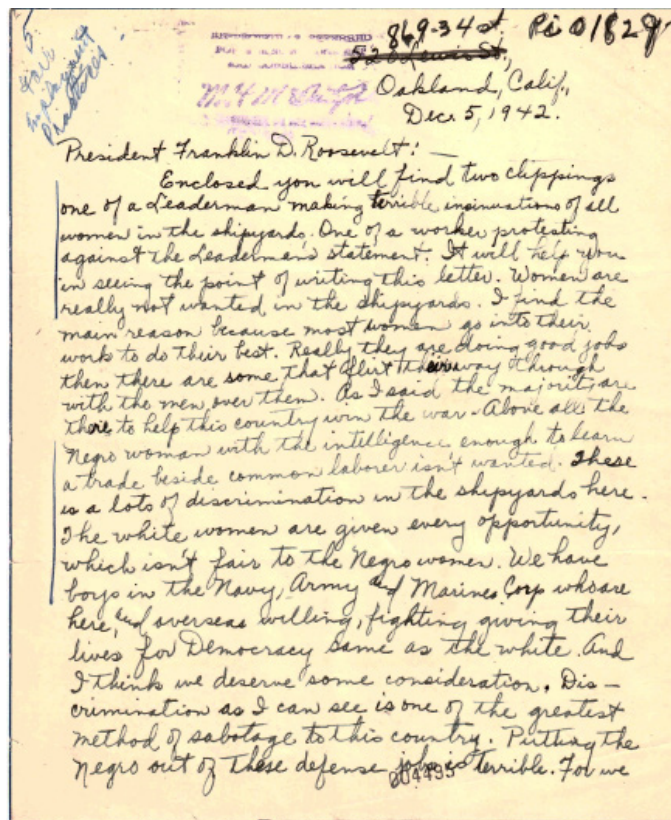 5.
Fair
Employment
Practices
869-34 st. Pi 01829
520 Lewis St.,
Oakland, Calif.,
Dec. 5, 1942.
President Franklin D. Roosevelt: —
Enclosed you will find two clippings
one of a Leaderman making terrible insinuations of all
women in the shipyards. One of a worker protesting
against the Leaderman's statement. It will help you
in seeing the point of writing this letter. Women are
really not wanted in the shipyards. I find the
main reason because most women go into their
work to do their best. Really they are doing good jobs
then there are some that flirt their way through
with the men over them. As I said the majority are
there to help this country win the war. Above all the
Negro woman with the intelligence enough to learn
a trade beside common laborer isn't wanted. These
is a lots of discrimination in the shipyards here.
The white women are given every opportunity,
which isn't fair to the Negro women. We have
boys in the Navy, Army and Marines Corp who are
here, and overseas willing, fighting giving their
lives for Democracy same as the white. And
I think we deserve some consideration. Dis-
crimination as I can see is one of the greatest
method of sabotage to this country. Putting the
Negro out of these defense jobs is terrible. For we
004495